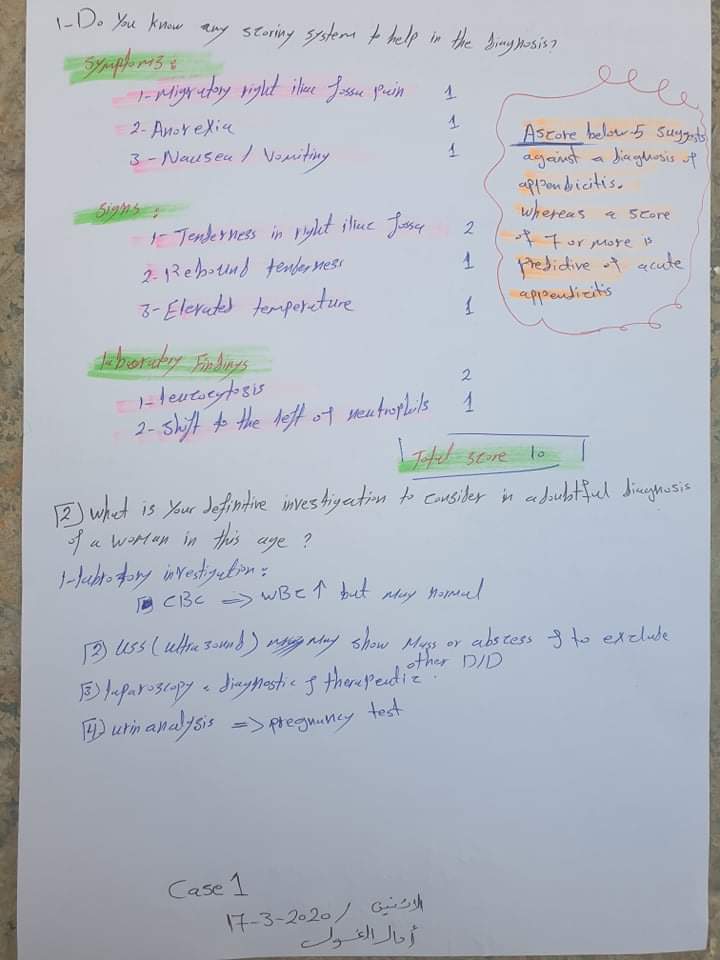 1-Do You know any scoring system to help in the diagnosis?
Symptoms:
1-Migratory right iliac fossa pain 1
2-Anorexia 1
3-Nausea / Vomiting 1
Signs:
1-Tenderness in right iliac fossa 2
2-Rebound tenderness 1
3-Elevated temperature 1
laboratory Findings
1-leucocytosis 2
2-Shift to the left of neutrophils 1
Total score 10
A score below 5 suggests
against a diagnosis of
appendicitis.
whereas a score
of 7 or more is
predictive of acute
appendicitis
2 What is Your definitive investigation to consider in a doubtful diagnosis
of a woman in this age ?
1-labrotory investigation:
CBC => WBC ↑ but may normal
2 USS (ultrasound) may show Mass or abscess & to exclude
other D/D
3 laparoscopy diagnostic & therapeutic.
4 urinanalysis => pregnancy test
Case 1
17-3-2020 / الاثنين